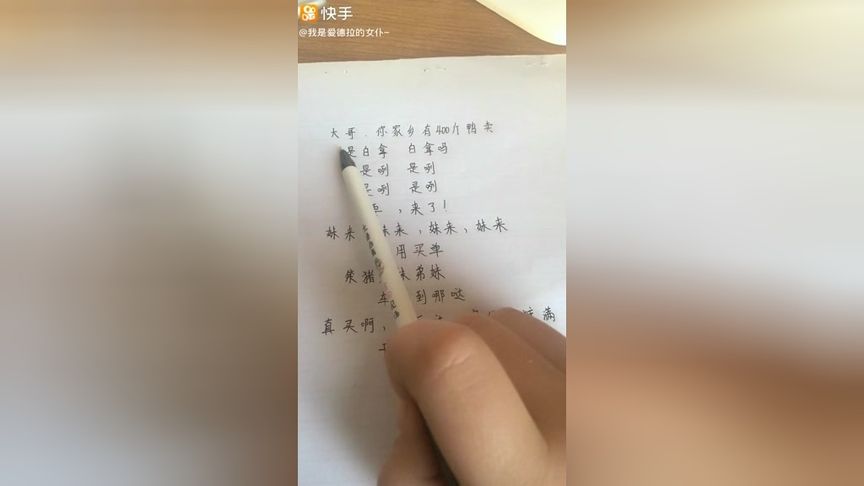 快手
@我是爱德拉的女仆~
大哥、你家乡有400个鸭卖
是白拿 白拿吗
是咧 是咧
是咧 是咧
，来了！
妹来，妹来，妹来，妹来
用买单
柴猪 妹弟妹
车 到那哒
真买啊， 满